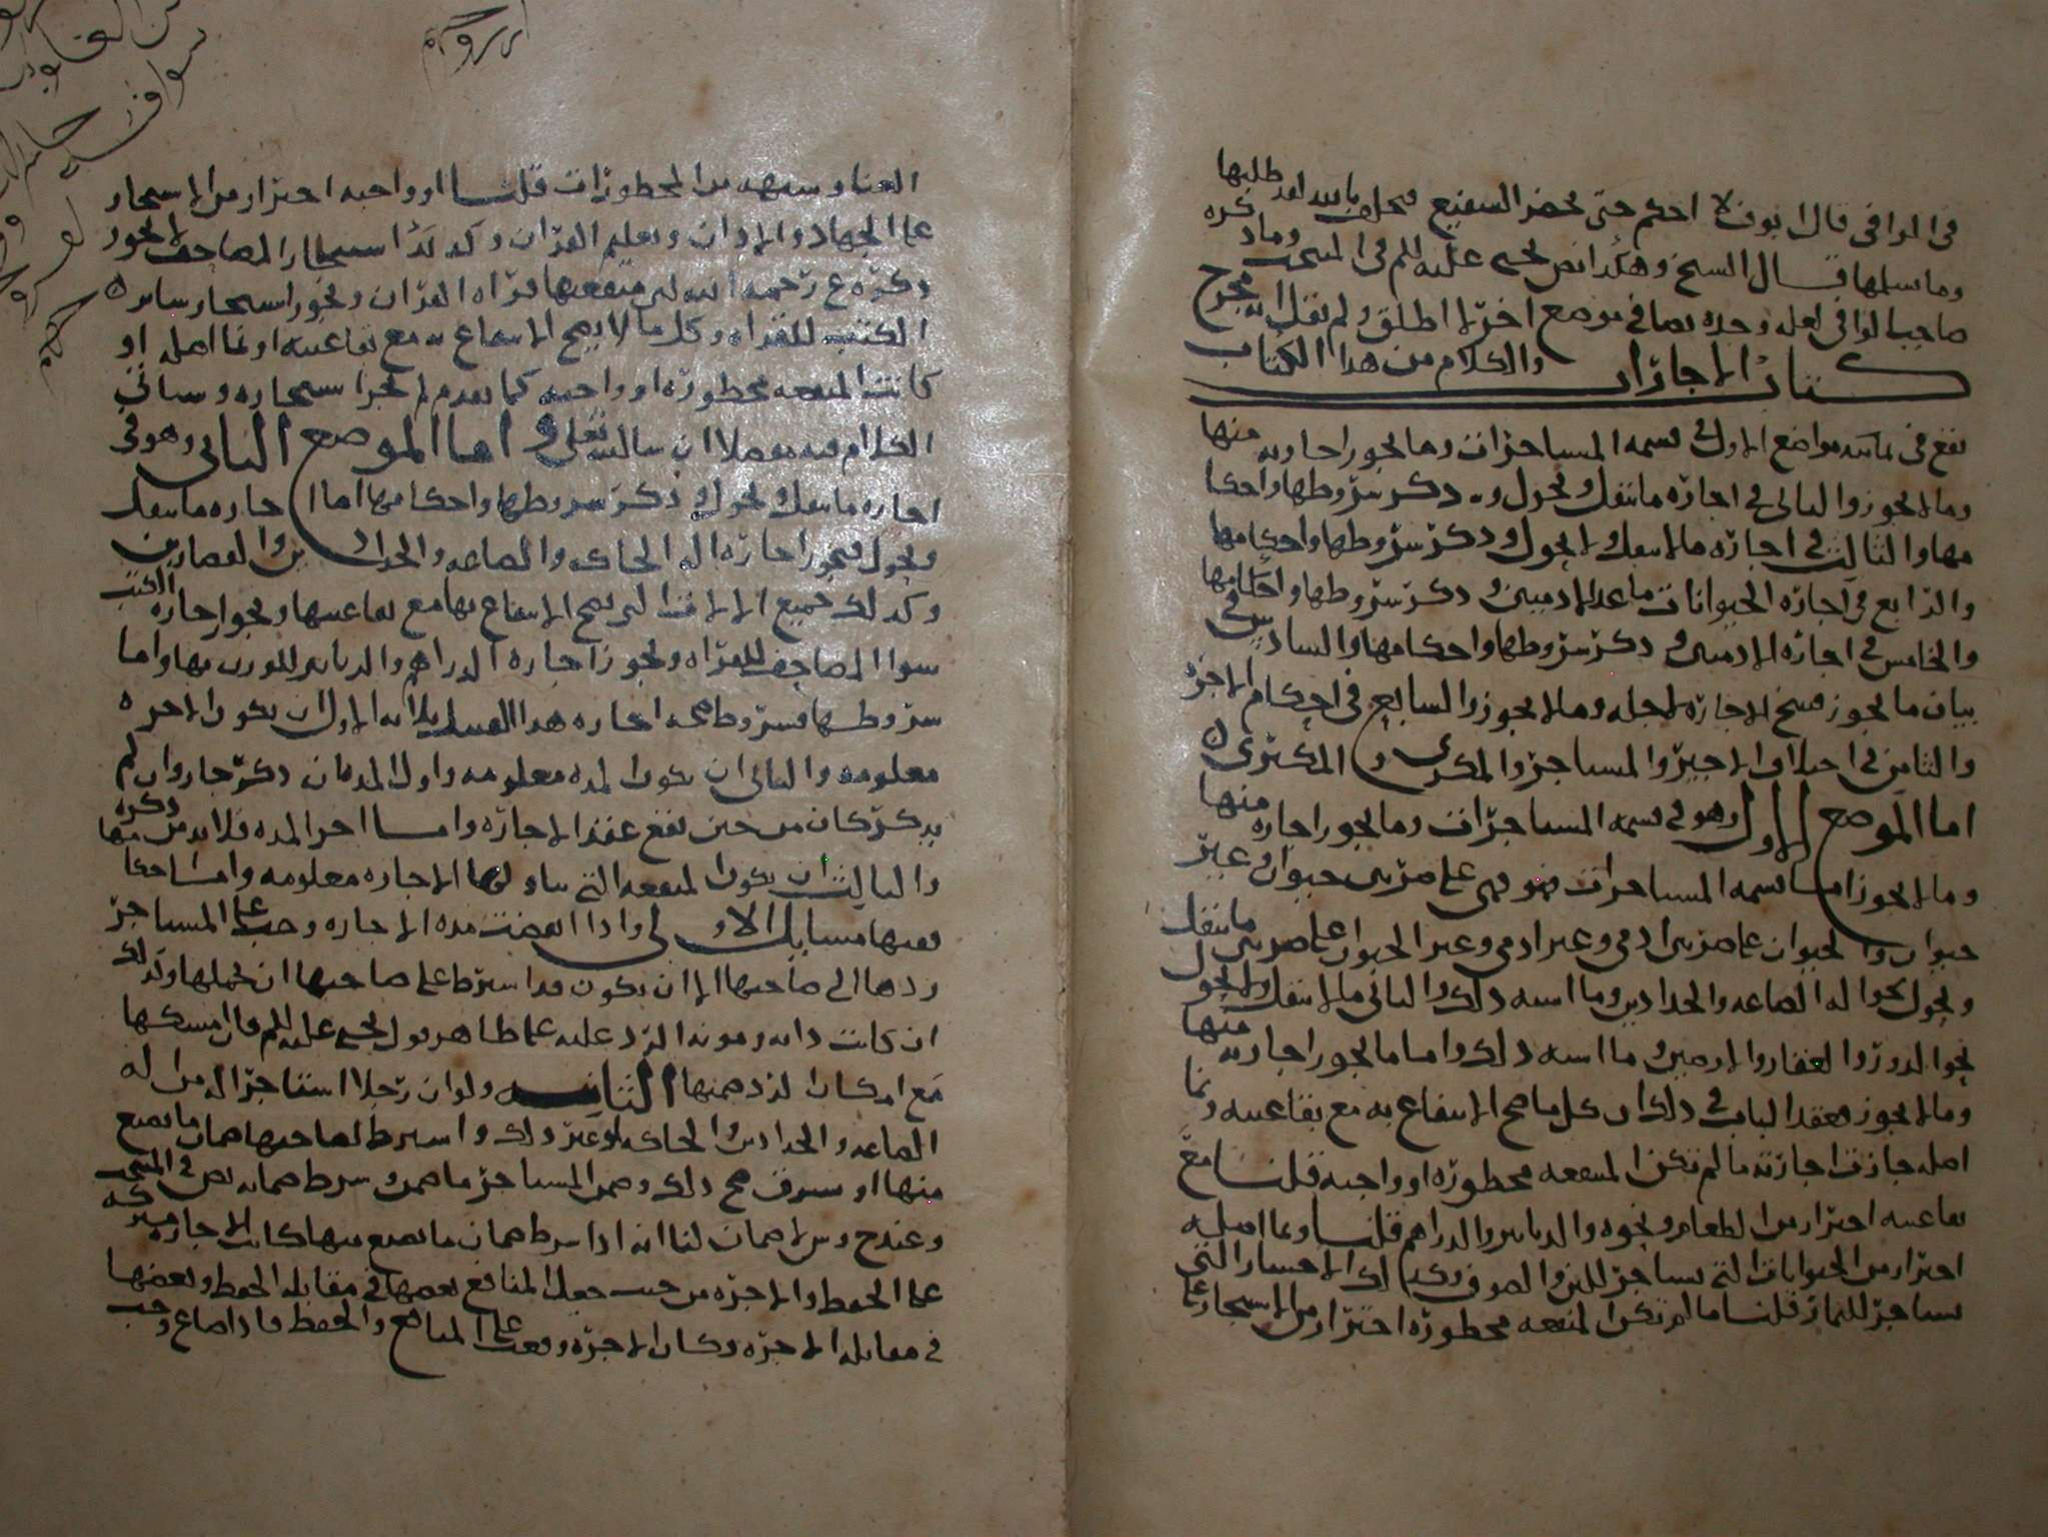 في الوافي قال ابو ف لا احكم حتى يحضر الشفيع فيحلف بالله لقد طلبها
وما سلمها قال الشيخ وهكذا نص يحيى عليه السلم في المنتخب وما ذكره
صاحب الوافي لعله وجده نصا في موضع اخر لاطلق ولم يقل انه مخرج
كتاب الاجازات والكلام من هذا الكتاب
يقع في ثمانية مواضع الاول في قسمة المستاجرات وما يجوز اجارته منها
وما لا يجوز والثاني في اجازة ما ينقل ويحول وذكر شروطها واحكا
مها والثالث في اجازة ما لا ينقل ولا يحول وذكر شروطها واحكامها
والرابع في اجازة الحيوانات ما عدا الادميين وذكر شروطها واحكامها
والخامس في اجازة الادميين وذكر شروطها واحكامها والسادس في
بيان ما يجوز فسخ الاجازة لاجله وما لا يجوز والسابع في احكام الاجرة
والثامن في اختلاف الاجير والمستاجر والمكري والمكتري
اما الموضع الاول وهو في قسمة المستاجرات وما يجوز اجازه منها
وما لا يجوز اما قسمة المستاجرات فهي على ضربين حيوان وغير
حيوان والحيوان على ضربين ادمي وغير ادمي وغير الحيوان على ضربين ما ينقل
ويحول نحو الة الصاغة والحدادين وما اشبه ذلك والثاني ما لا ينقل ولا يحول
نحو الدور والعقار والارضين وما اشبه ذلك واما ما يجوز اجارته منها
وما لا يجوز فعقد الباب في ذلك ان كل ما صح الانتفاع به مع بقا عينه ونما
اصله جازت اجازته ما لم تكن المنفعة محظورة او واجبة قلنا مع
بقا عينه احتراز من الطعام ونحوه والدنانير والدراهم قلنا ونما اصله
احتراز من الحيوانات التي تستاجر للبن والصوف وكذلك الاشجار التي
تستاجر للثمار قلنا ما لم تكن المنفعة محظورة احتراز من الاستيجار على
الغنا وشبهه من المحظورات قلنا او واجبة احتراز من الاستيجار
على الجهاد والاذان وتعليم القران وكذلك استيجار المصاحف لا يجوز
ذكره ع رحمه الله لان منفعتها قراة القران ويجوز استيجار سائر
الكتب للقراة وكل ما لا يصح الانتفاع به مع بقا عينه او نما اصله او
كانت المنفعة محظورة او واجبة كما تقدم لم يجز استيجاره وسياتي
الكلام فيه مفصلا ان شا الله تعلى واما الموضع الثاني وهو في
اجازه ما ينقل ويحول وذكر شروطها واحكامها اما اجازه ما ينقل
ويحول فيجوز اجازة الة الحاكة والصاغة والحدادين والقصارين
وكذلك جميع الالات التي يصح الانتفاع بها مع بقا عينها ويجوز اجازه الكتب
سوا المصاحف للقراة ويجوز اجازة الدراهم والدنانير للوزن بها واما
شروطها فشروط صحة اجازه هذا القبيل ثلاثة الاول ان يكون الاجرة
معلومة والثاني ان يكون المدة معلومة واول المدة ان ذكر جاز وان لم
يذكر كان من حين يقع عقد الاجازة واما اخر المدة فلا بد من ذكره
والثالث ان يكون المنفعة التي تناولها الاجازه معلومة واما احكا
مها ففيها مسايل الاولى واذا انقضت مدة الاجازه وجب على المستاجر
ردها الى صاحبها الا ان يكون قد اشترط على صاحبها ان يحملها وكذلك
ان كانت دابة ومونة الرد عليه على ظاهر قول يحيى عليه السلم فان امسكها
مع امكان الرد ضمنها الثانية ولو ان رجلا استاجر الة من الة
الصاغة والحدادين والحاكة او غير ذلك واشترط لصاحبها ضمان ما يضيع
منها او يسرق صح ذلك وضمن المستاجر ما ضمن وشرط ضمانه نص في المنتخب
وعند ح وش لا ضمان لنا انه اذا شرط ضمان ما يضيع منها كانت الاجازة مشتركة
على الحفظ والاجرة من حيث جعل المنافع بعضها في مقابلة الحفظ وبعضها
في مقابلة الاجرة وكان الاجرة وقعت على المنافع والحفظ فاذا ضاع وجب